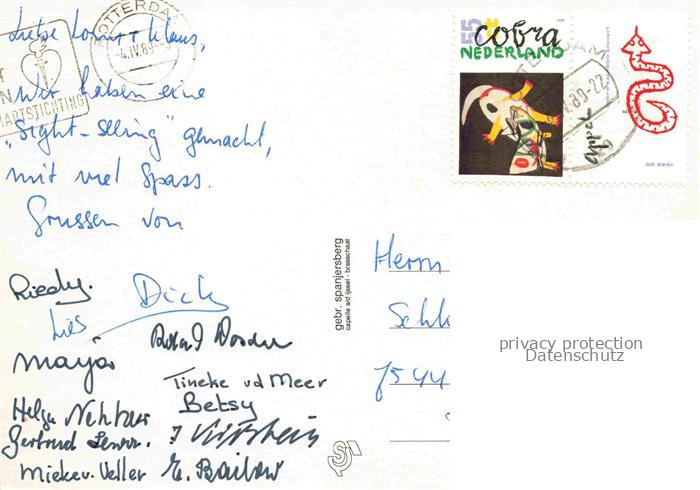 ROTTERDAM
4.IV.89
HARTSTICHTING
Liebe Lomi + Klaus,
Wir haben eine
"Sight-Seeing" gemacht,
mit viel Spass.
Grussen von
Riedy.
Dick
Lies
Mayjo
Tineke vd Meer
Betsy
Helga
Gertrud
Miekev. Veller E. Bailow
55
cobra
NEDERLAND
gebr. spanjersberg
capelle a/d ijssel - brasschaat
Herrn
Schl
7544
privacy protection
Datenschutz